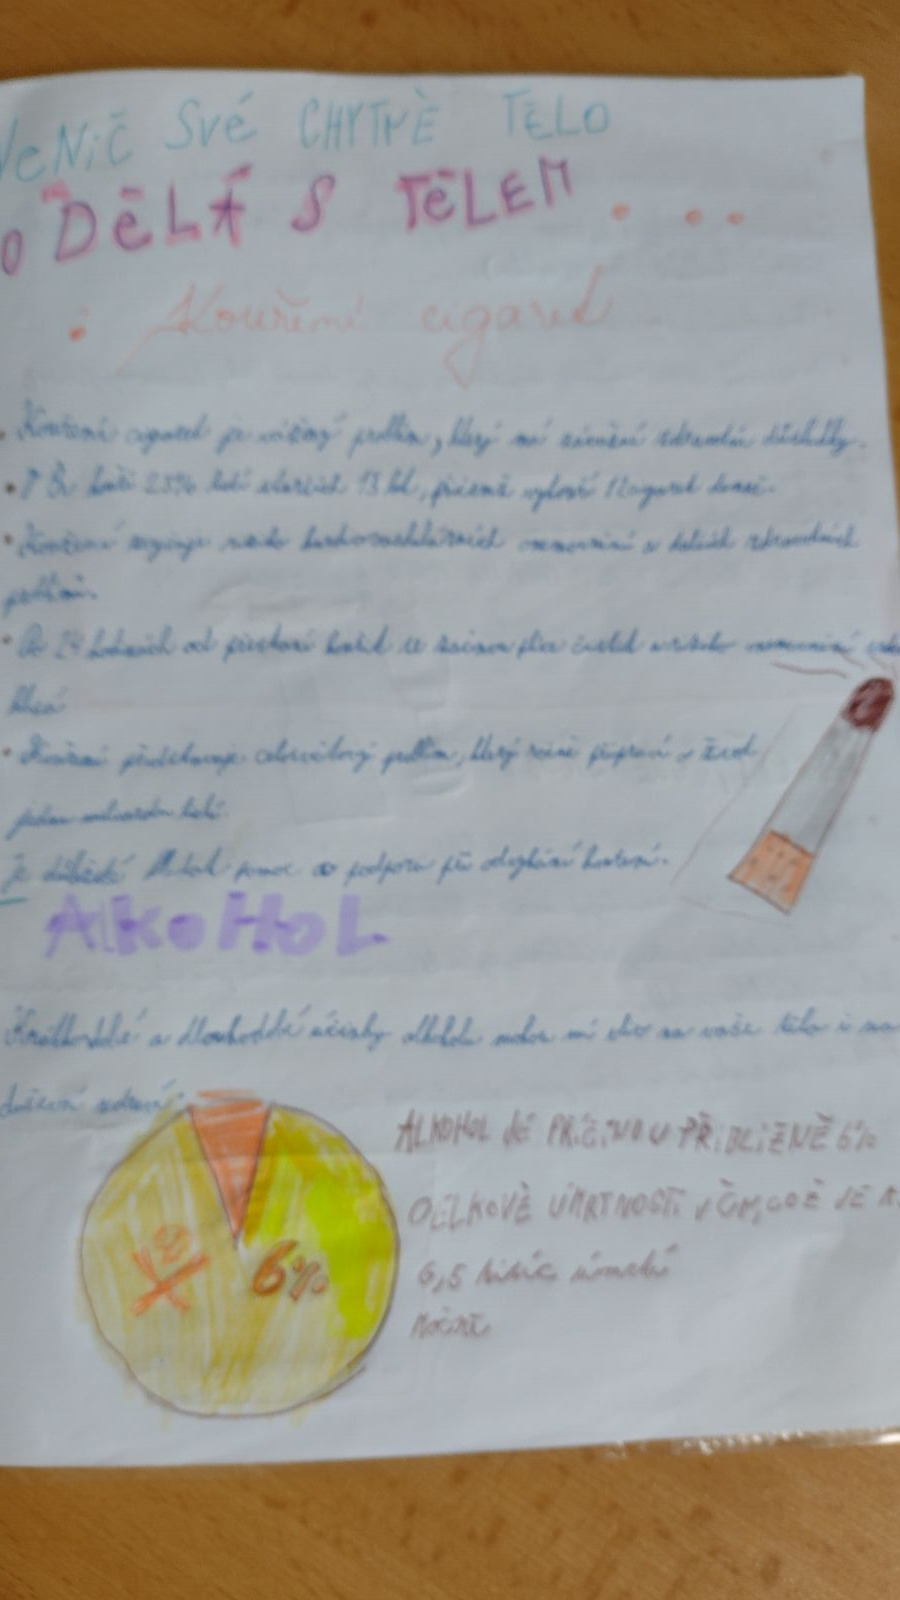 NeNič Své CHYTRÉ TĚLO
O DĚLÁ S TĚLEM . . .
: Kouření cigaret
• Kouření cigaret je vážný problém, který má závažné zdravotní důsledky.
• V ČR kouří 23% lidí starších 15 let, přičemž vykouří cigaret denně.
• Kouření zvyšuje riziko kardiovaskulárních onemocnění a dalších zdravotních
problémů.
• Po 24 hodinách od přestání kouřit se začnou plíce čistit a riziko onemocnění
klesá
• Kouření představuje celosvětový problém, který ročně připraví o život
jednu miliardu lidí.
Je důležité hledat pomoc a podporu při odvykání kouření.
AlkoHoL
Krátkodobé a dlouhodobé účinky alkoholu mohou mít vliv na vaše tělo i na
duševní zdraví.
6%
ALKOHOL JE PŘíČiNOU PŘiBLiŽNĚ 6%
CELKOVÉ ÚMRTNOSTi v ČR, COŽ JE
6,5 tisíc úmrtí
ročně